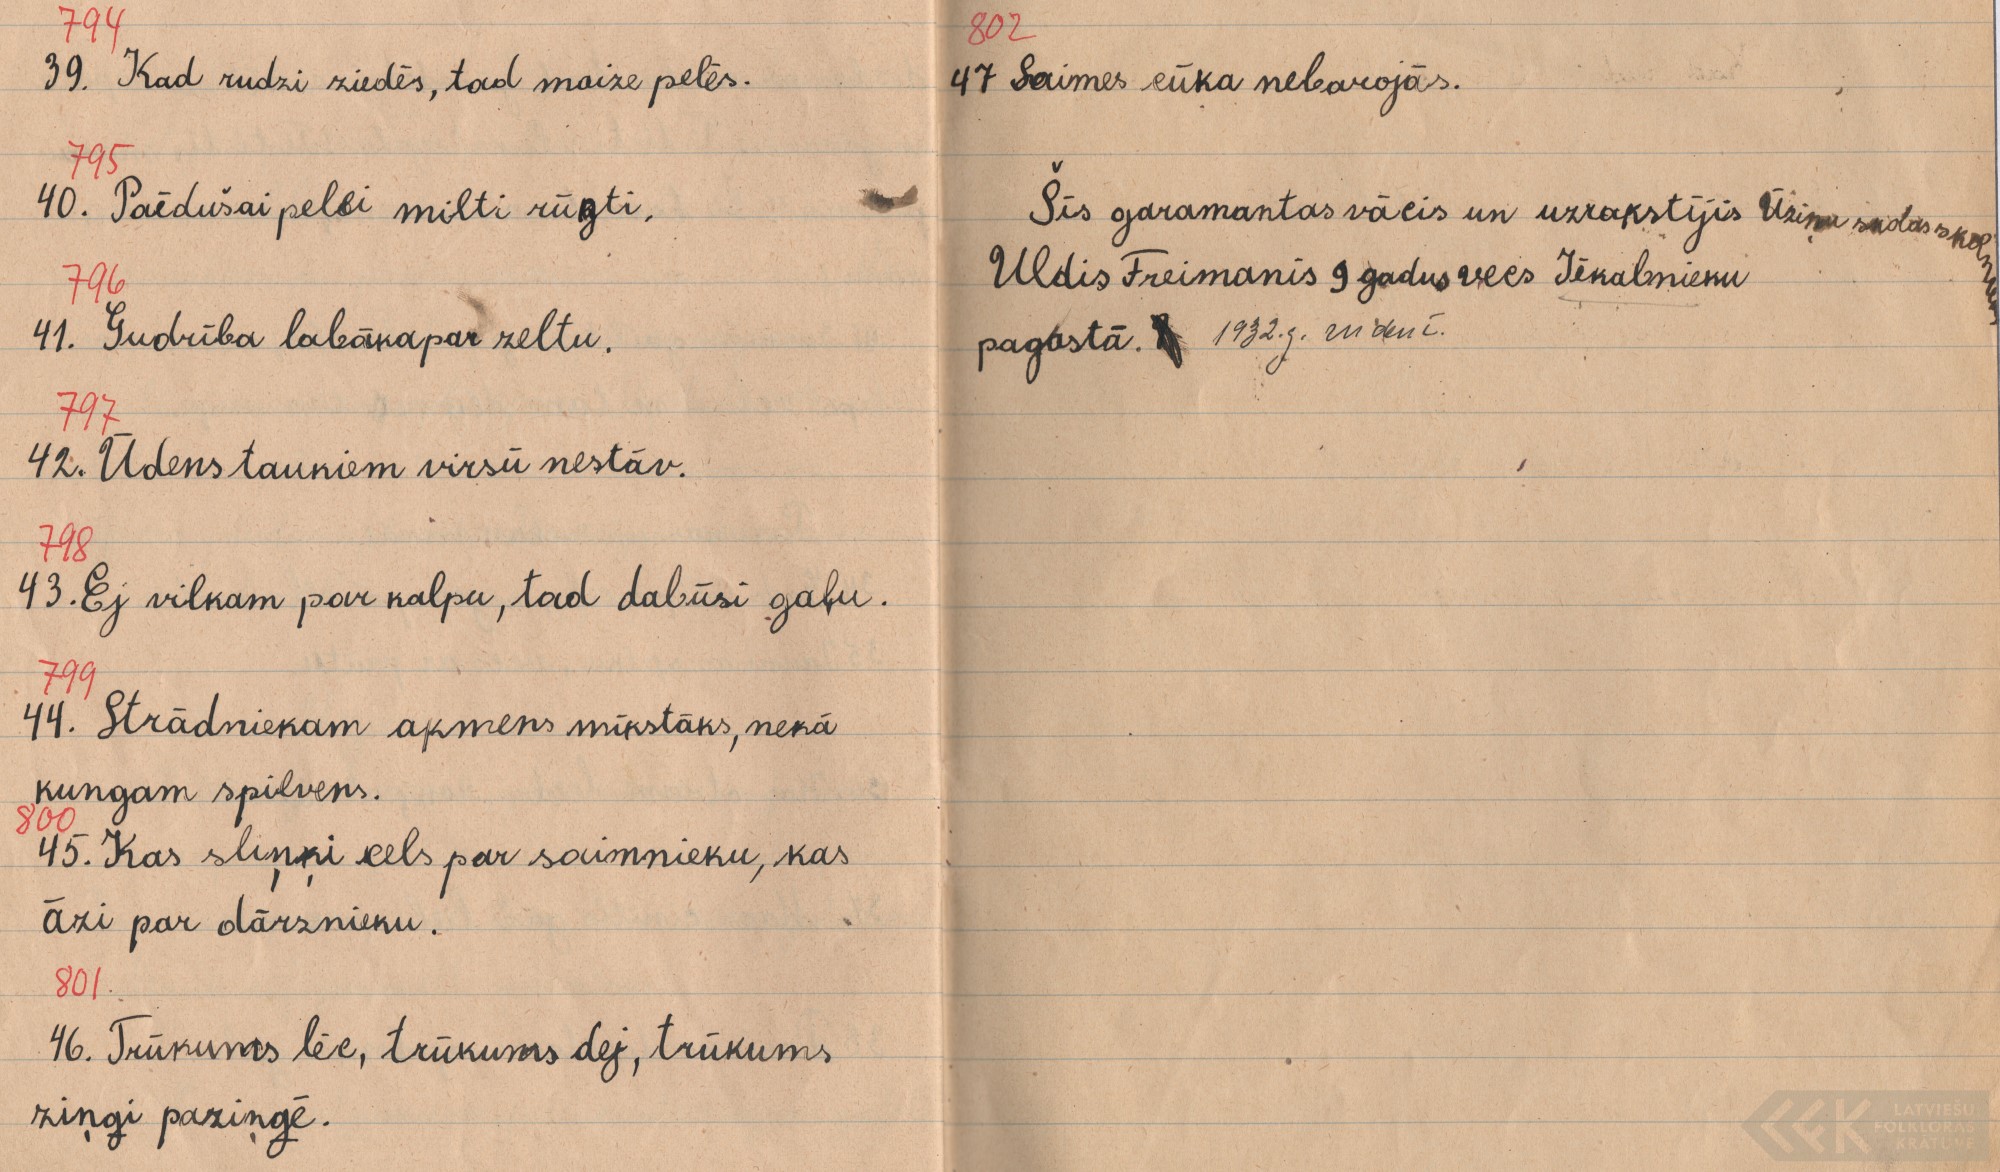 794
39. Kad rudzi ziedēs, tad maize pelēs.
795
40. Paēdušai pelei milti rūgti.
796
41. Gudrība labāka par zeltu.
797
42. Ūdens taukiem virsū nestāv.
798
43. Ej vilkam par kalpu, tad dabūsi gaļu.
799
44. Strādniekam akmens mīkstāks, nekā
kungam spilvens.
800
45. Kas sliņķi cels par saimnieku, kas
āzi par dārznieku.
801.
46. Trūkums lēc, trūkums dej, trūkums
ziņģi paziņģē.
802
47 Saimes cūka nebarojās.
Šīs garamantas vācis un uzrakstījis Ūziņu sādas skolnieks
Uldis Freimanis 9 gadus vecs Jēkabnieku
pagastā. 1932.g. rudenī.
LATVIEŠU
FOLKLORAS
KRĀTUVE